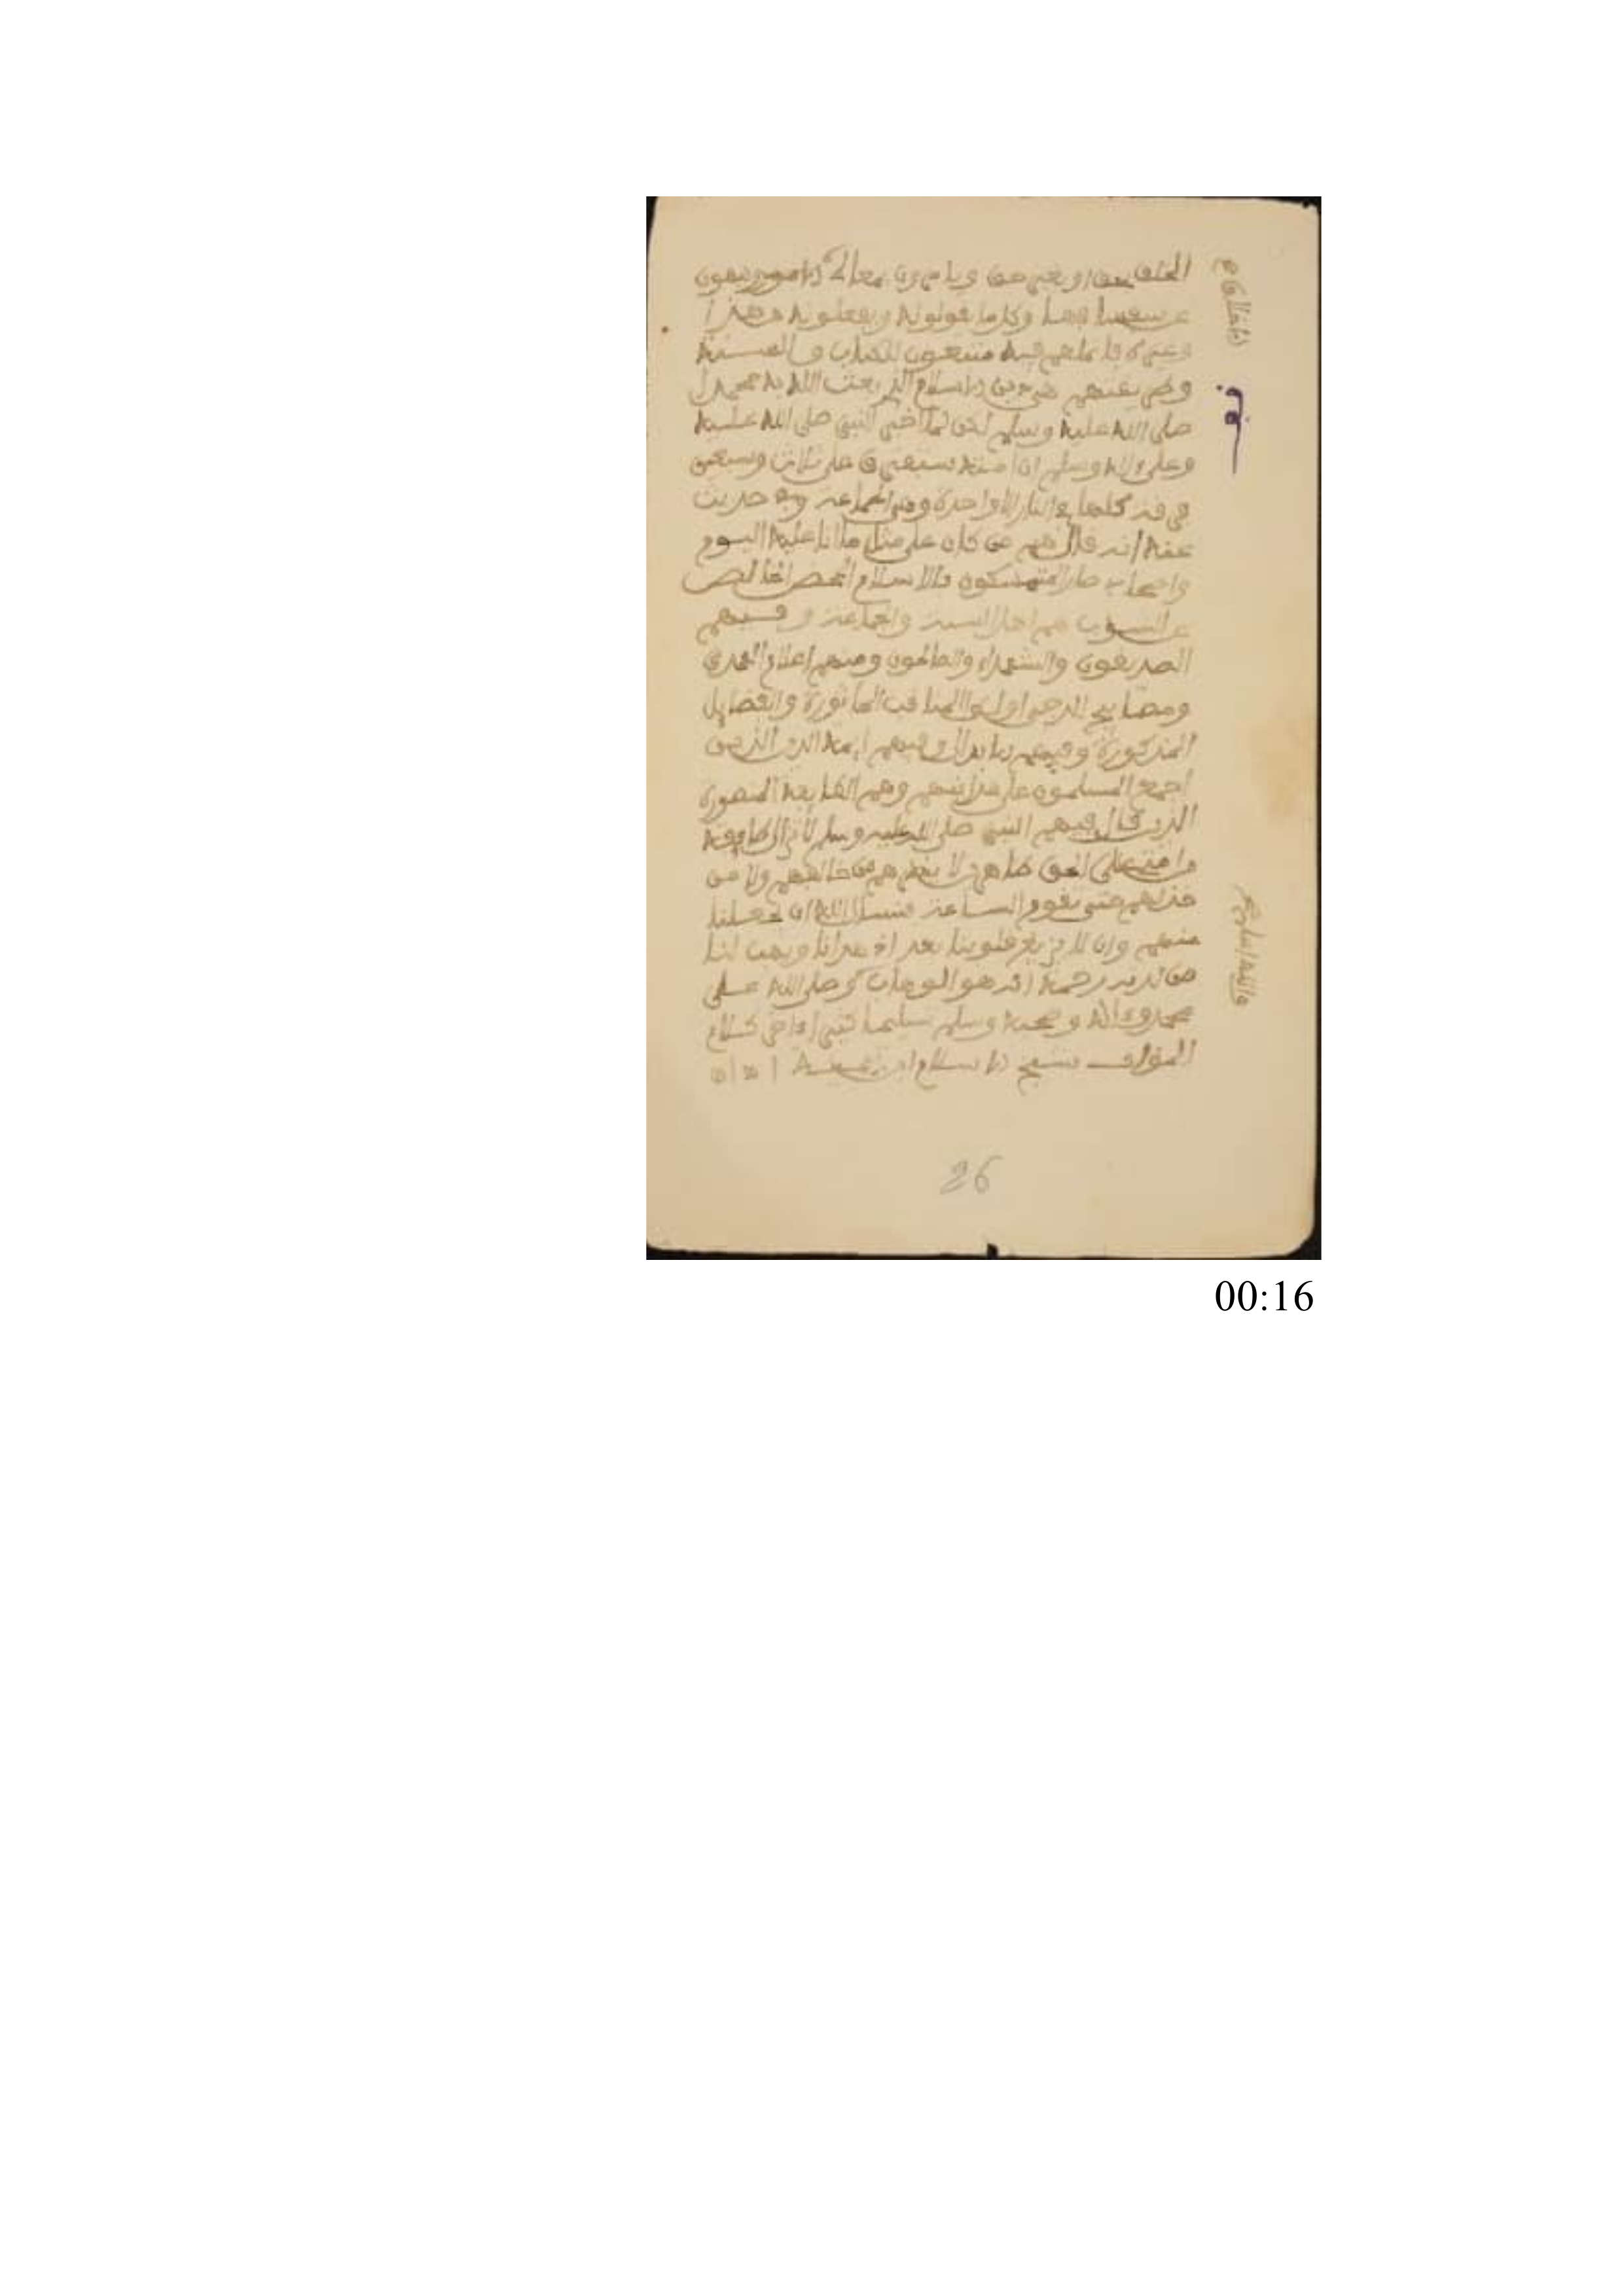 الخلق بحق او بغير حق ويامرون بمعالي الامور وينهون
عن سفسافها وكل ما يقولونه ويفعلونه من هذا
وغيره فانما هم فيه متبعون للكتاب والسنة
وطريقتهم هي دين الاسلام الذي بعث الله به محمدا
صلى الله عليه وسلم لكن لما اخبر النبي صلى الله عليه
وعلى اله وسلم ان امته ستفترق على ثلاث وسبعين
فرقة كلها في النار الا واحدة وهي الجماعة وفي حديث
عنه انه قال هم من كان على مثل ما انا عليه اليوم
واصحابي صار المتمسكون بالاسلام المحض الخالص
عن الشوب هم اهل السنة والجماعة وفيهم
الصديقون والشهداء والصالحون ومنهم اعلام الهدى
ومصابيح الدجى اولوا المناقب الماثورة والفضايل
المذكورة وفيهم الابدال وفيهم ايمة الدين الذين
اجمع المسلمون على هدايتهم وهم الطايفة المنصورة
الذين قال فيهم النبي صلى الله عليه وسلم لا تزال طايفة
من امتي على الحق ظاهرين لا يضرهم من خالفهم ولا من
خذلهم حتى تقوم الساعة فنسال الله ان يجعلنا
منهم وان لا يزيغ قلوبنا بعد اذ هدانا ويهب لنا
من لدنه رحمة انه هو الوهاب وصلى الله على
محمد واله وصحبه وسلم تسليما كثيرا اخر كلام
المؤلف شيخ الاسلام ابن تيمية
26
والله اعلم
00:16